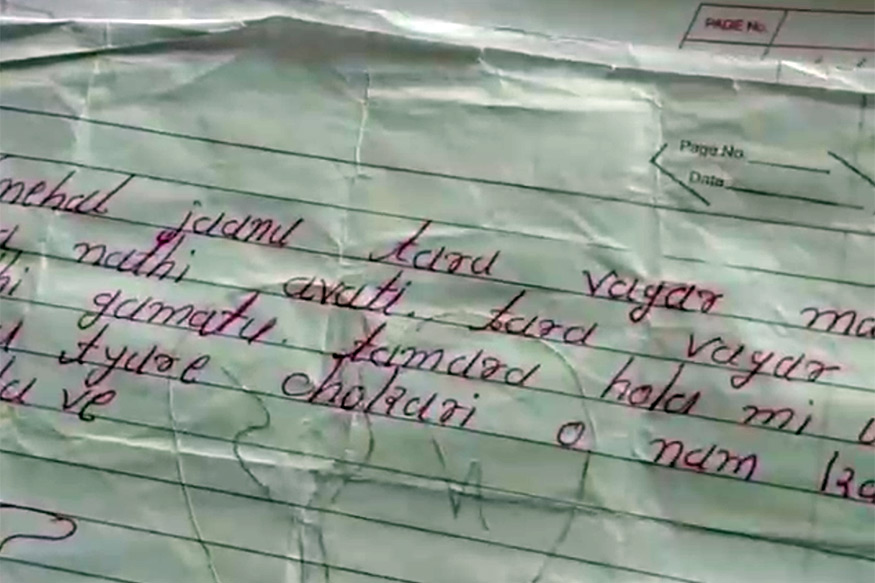 PAGE No.
Page No.
Date
mehal jaanu tara vagar ma
nathi avati. tara vagar
hi gamatu. tamara hola mi
tyare chokari o nam ka
ve